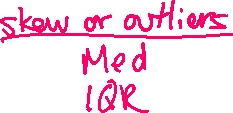 skew or outliers
Med
IQR